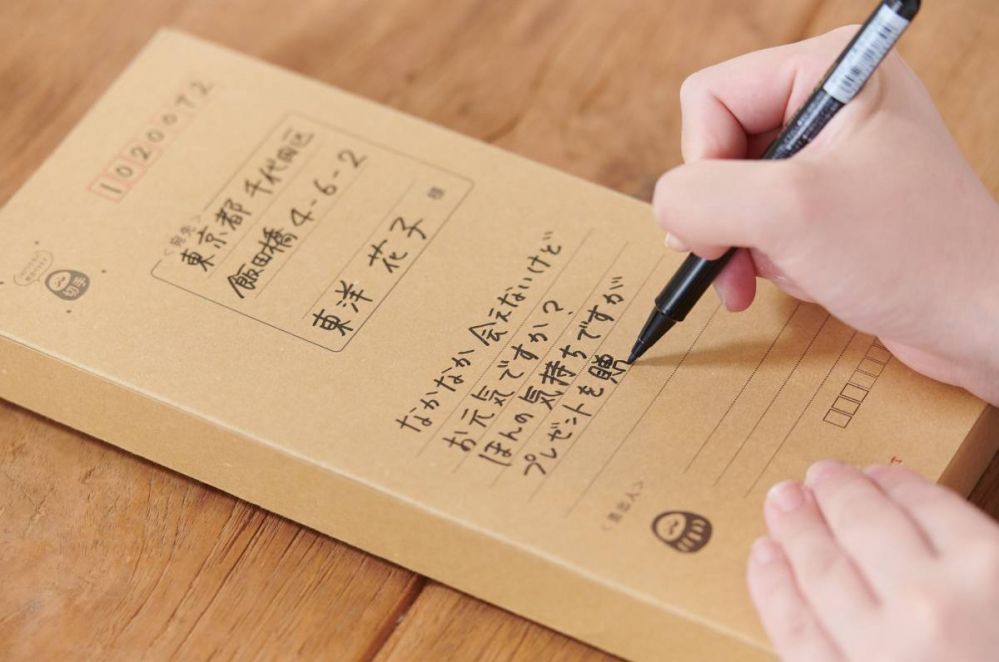 1020072
<宛先>
東京都 千代田区
飯田橋4-6-2
東洋 花子 様
切手
なかなか 会えないけど
お元気ですか?
ほんの気持ちですが
プレゼントを贈
<差出人>